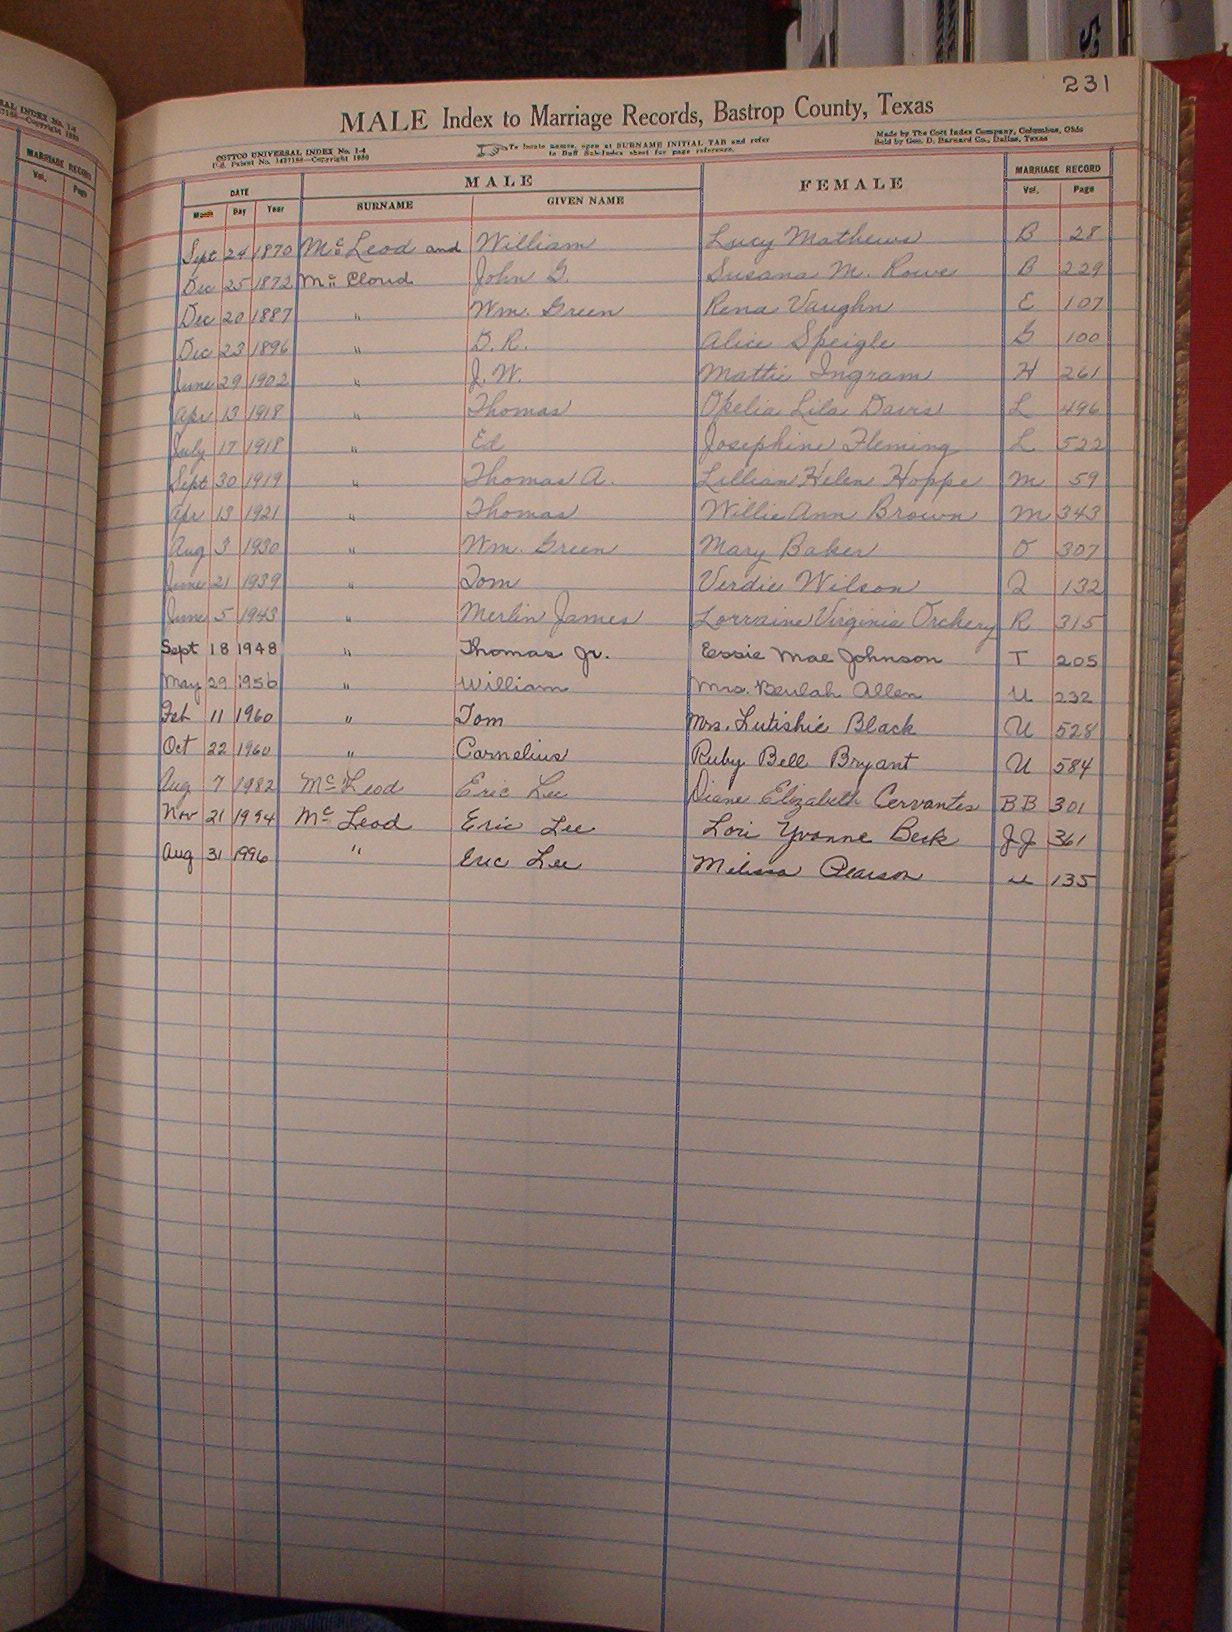 231
MALE Index to Marriage Records, Bastrop County, Texas
COTTCO UNIVERSAL INDEX No. 1-4
U.S. Patent No. 1437166—Copyright 1930
To locate names, open at SURNAME INITIAL TAB and refer
to Buff Sub-Index sheet for page reference.
Made by The Cott Index Company, Columbus, Ohio
Sold by Geo. D. Barnard Co., Dallas, Texas
DATE MALE FEMALE MARRIAGE RECORD
Month Day Year SURNAME GIVEN NAME Vol. Page
Sept 24 1870 McLeod and William Lucy Mathews B 28
Dec 25 1872 McCloud John G. Susana M. Rowe B 229
Dec 20 1887 " Wm. Green Rena Vaughn E 107
Dec 23 1896 " D. R. Alice Speigle G 100
June 29 1902 " J. W. Mattie Ingram H 261
Apr 13 1918 " Thomas Opelia Lila Davis L 496
July 17 1918 " Ed Josephine Fleming L 522
Sept 30 1919 " Thomas A. Lillian Helen Hoppe M 59
Apr 13 1921 " Thomas Willie Ann Brown M 343
Aug 3 1930 " Wm. Green Mary Baker O 307
June 21 1939 " Tom Verdie Wilson Q 132
June 5 1943 " Merlin James Lorraine Virginia Orchery R 315
Sept 18 1948 " Thomas Jr. Essie Mae Johnson T 205
May 29 1956 " William Mrs. Beulah Allen U 232
Feb 11 1960 " Tom Mrs. Lutishie Black U 528
Oct 22 1960 " Carnelius Ruby Bell Bryant U 584
Aug 7 1982 McLeod Eric Lee Diane Elizabeth Cervantes BB 301
Nov 21 1994 McLeod Eric Lee Lori Yvonne Beck JJ 361
Aug 31 1996 " Eric Lee Melissa Pearson 135
MARRIAGE RECORD
Vol. Page